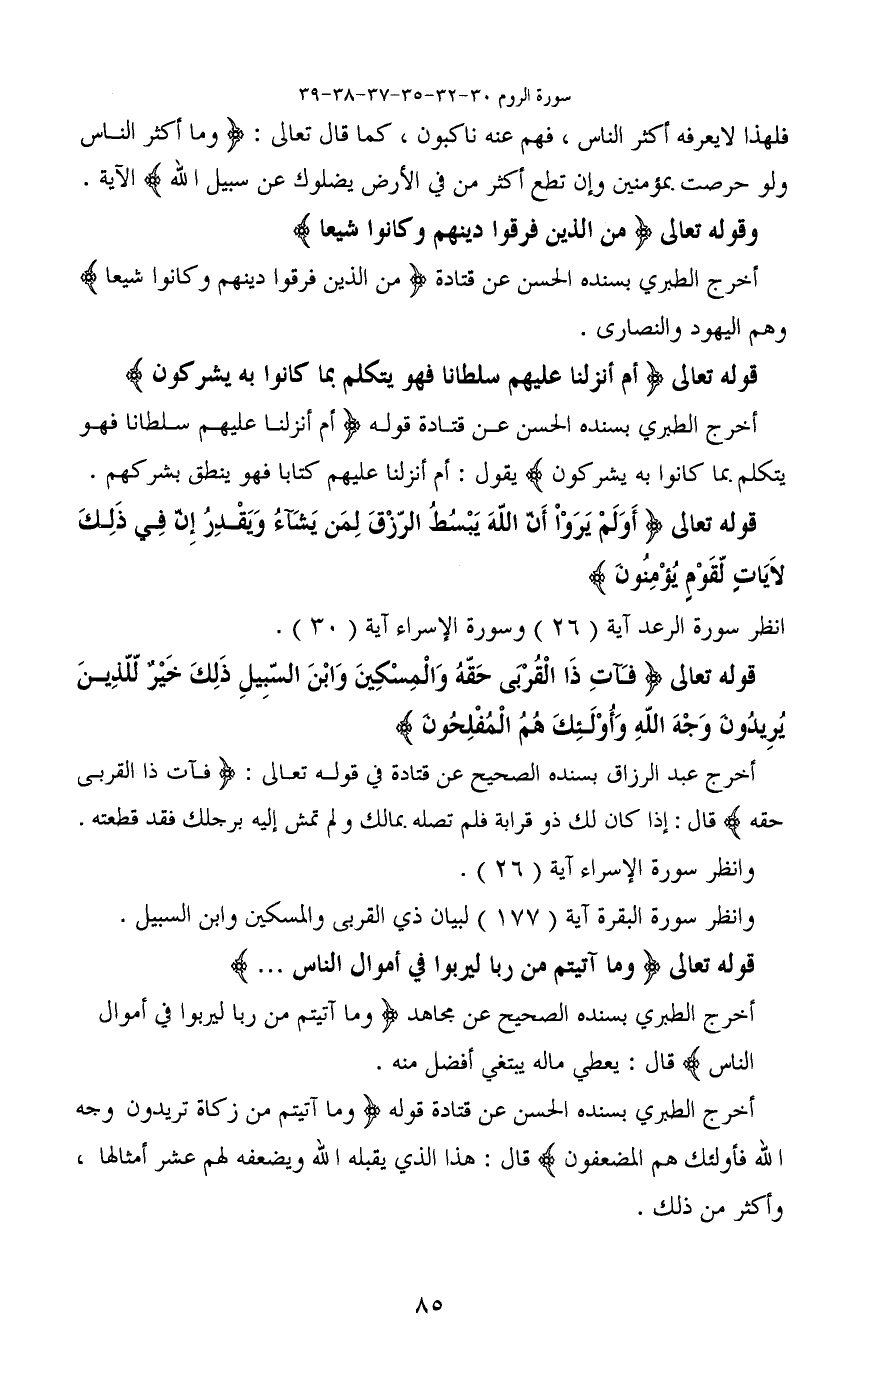 سورة الروم ٣٠-٣٢-٣٥-٣٧-٣٨-٣٩
فلهذا لايعرفه أكثر الناس ، فهم عنه ناكبون ، كما قال تعالى : ﴿ وما أكثر النـاس
ولو حرصت بمؤمنين وإن تطع أكثر من في الأرض يضلوك عن سبيل الله ﴾ الآية .
وقوله تعالى ﴿ من الذين فرقوا دينهم وكانوا شيعا ﴾
أخرج الطبري بسنده الحسن عن قتادة ﴿ من الذين فرقوا دينهم وكانوا شيعا ﴾
وهم اليهود والنصارى .
قوله تعالى ﴿ أم أنزلنا عليهم سلطانا فهو يتكلم بما كانوا به يشركون ﴾
أخرج الطبري بسنده الحسن عـن قتـادة قولـه ﴿ أم أنزلنـا عليهـم سـلطانا فهـو
يتكلم بما كانوا به يشركون ﴾ يقول : أم أنزلنا عليهم كتابا فهو ينطق بشركهم .
قوله تعالى ﴿ أَوَلَمْ يَرَوْاْ أَنّ اللّهَ يَبْسُطُ الرّزْقَ لِمَن يَشَآءُ وَيَقْـدِرُ إِنّ فِـي ذَلِـكَ
لاَيَاتٍ لّقَوْمٍ يُؤْمِنُونَ ﴾
انظر سورة الرعد آية ( ٢٦ ) وسورة الإسراء آية ( ٣٠ ) .
قوله تعالى ﴿ فـَآتِ ذَا الْقُرْبَى حَقّهُ وَالْمِسْكِينَ وَابْنَ السّبِيلِ ذَلِكَ خَيْرٌ لّلّذِيـنَ
يُرِيدُونَ وَجْهَ اللّهِ وَأُوْلَـئِكَ هُمُ الْمُفْلِحُونَ ﴾
أخرج عبد الرزاق بسنده الصحيح عن قتادة في قولـه تعـالى : ﴿ فـآت ذا القربـى
حقه ﴾ قال : إذا كان لك ذو قرابة فلم تصله بمالك ولم تمش إليه برجلك فقد قطعته .
وانظر سورة الإسراء آية ( ٢٦ ) .
وانظر سورة البقرة آية ( ١٧٧ ) لبيان ذي القربى والمسكين وابن السبيل .
قوله تعالى ﴿ وما آتيتم من ربا ليربوا في أموال الناس ... ﴾
أخرج الطبري بسنده الصحيح عن مجاهد ﴿ وما آتيتم من ربا ليربوا في أموال
الناس ﴾ قال : يعطي ماله يبتغي أفضل منه .
أخرج الطبري بسنده الحسن عن قتادة قوله ﴿ وما آتيتم من زكاة تريدون وجه
الله فأولئك هم المضعفون ﴾ قال : هذا الذي يقبله الله ويضعفه لهم عشر أمثالها ،
وأكثر من ذلك .
٨٥